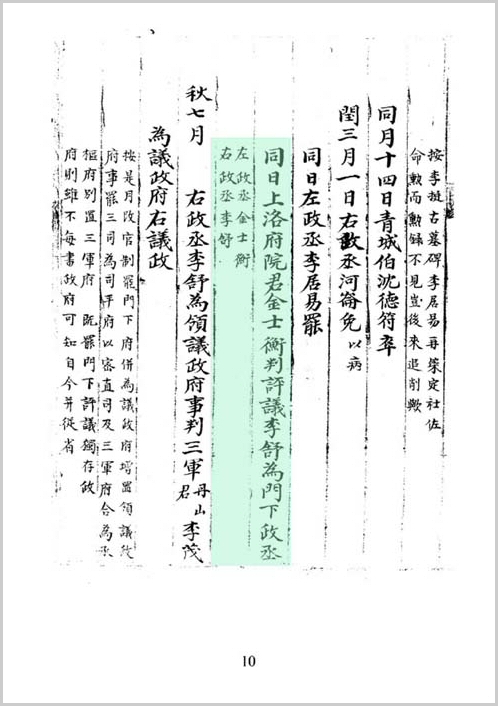 按李挺古墓碑李居易再策定社佐
命勳而勳錄不見豈後來追削歟
同月十四日青城伯沈德符卒
閏三月一日右政丞河崙免 以病
同日左政丞李居易罷
同日上洛府院君金士衡判評議李舒為門下政丞
左政丞金士衡
右政丞李舒
秋七月 右政丞李舒為領議政府事判三軍 丹山君 李茂
為議政府右議政
按是月改官制罷門下府併為議政府增置領議政
府事罷三司為司平府以審直司及三軍府合為承
樞府別置三軍府 既罷門下評議獨存政
府則雖不每書政府可知自今并從省
10